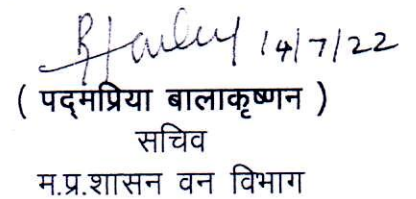 14/7/22
( पद्मप्रिया बालाकृष्णन )
सचिव
म.प्र.शासन वन विभाग